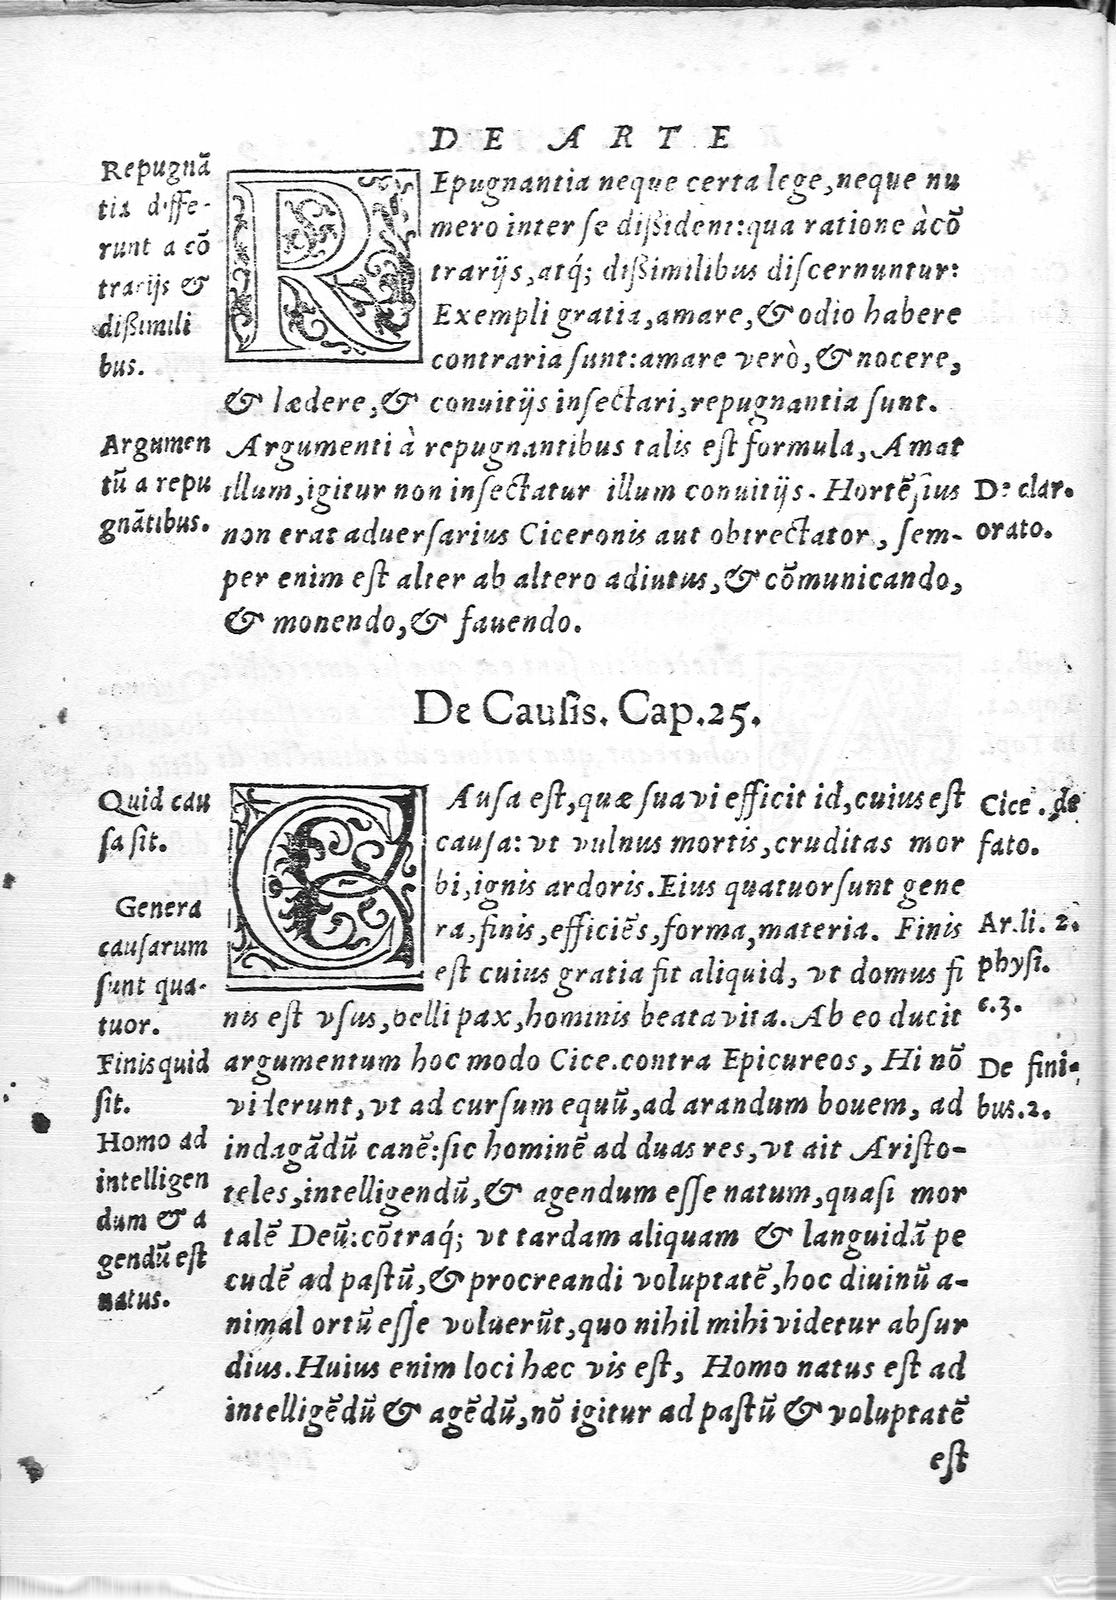 DE ARTE
Repugnã
tia diffe-
runt a cõ
trarijs &
dißimili
bus.
REpugnantia neque certa lege, neque nu
mero inter se dißident: qua ratione à cõ
trarijs, atq́; dißimilibus discernuntur:
Exempli gratia, amare, & odio habere
contraria sunt: amare verò, & nocere,
& lædere, & conuitijs insectari, repugnantia sunt.
Argumen
tũ a repu
gnãtibus.
Argumenti à repugnantibus talis est formula, Amat
illum, igitur non insectatur illum conuitijs. Hortẽsius
non erat aduersarius Ciceronis aut obtrectator, sem-
per enim est alter ab altero adiutus, & cõmunicando,
& monendo, & fauendo.
De clar.
orato.
De Causis. Cap. 25.
Quid cau
sa sit.
Genera
causarum
sunt qua-
tuor.
Finis quid
sit.
Homo ad
intelligen
dum & a
gendũ est
natus.
CAusa est, quæ sua vi efficit id, cuius est
causa: vt vulnus mortis, cruditas mor
bi, ignis ardoris. Eius quatuor sunt gene
ra, finis, efficiẽs, forma, materia. Finis
est cuius gratia fit aliquid, vt domus fi
nis est vsus, belli pax, hominis beata vita. Ab eo ducit
argumentum hoc modo Cice. contra Epicureos, Hi nõ
viderunt, vt ad cursum equũ, ad arandum bouem, ad
indagãdũ canẽ: sic hominẽ ad duas res, vt ait Aristo-
teles, intelligendũ, & agendum esse natum, quasi mor
talẽ Deũ: cõtraq́; vt tardam aliquam & languidã pe
cudẽ ad pastũ, & procreandi voluptatẽ, hoc diuinũ a-
nimal ortũ esse voluerũt, quo nihil mihi videtur absur
dius. Huius enim loci hæc vis est, Homo natus est ad
intelligẽdũ & agẽdũ, nõ igitur ad pastũ & voluptatẽ
est
Cice. de
fato.
Ar. li. 2.
physi.
c. 3.
De fini-
bus. 2.